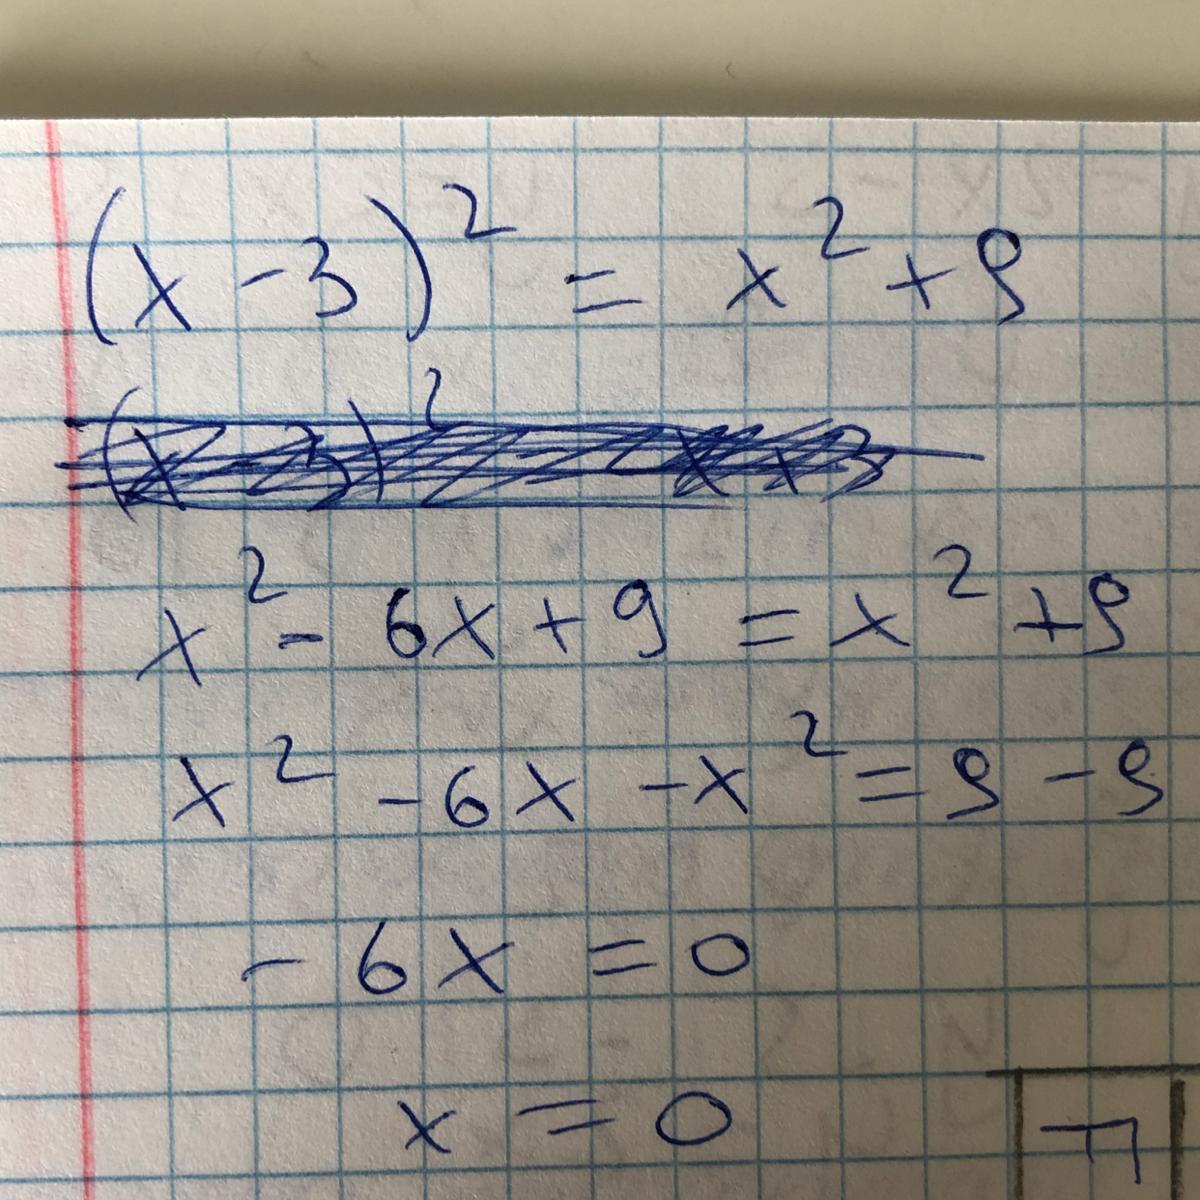 (x - 3)² = x² + 9
x² - 6x + 9 = x² + 9
x² - 6x - x² = 9 - 9
- 6x = 0
x = 0